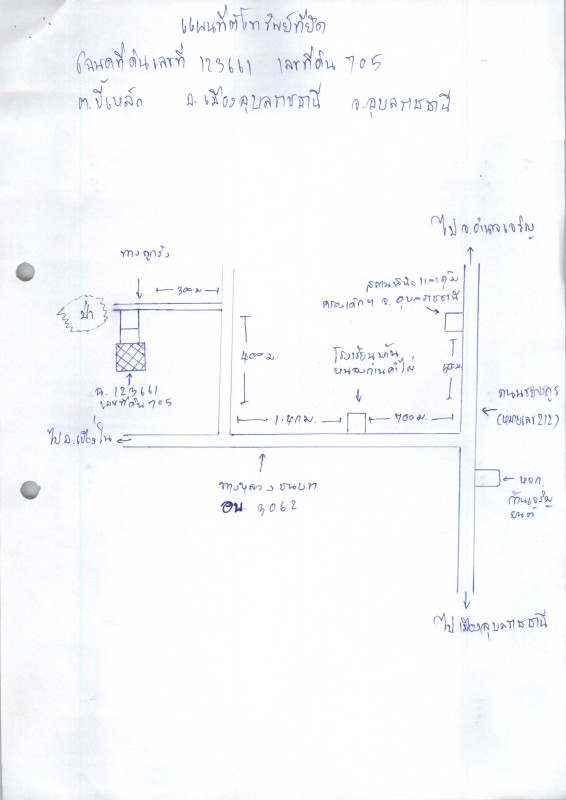 แผนที่ตั้งทรัพย์ที่ยึด
โฉนดที่ดินเลขที่ 123661 เลขที่ดิน 705
ต.ขี้เหล็ก อ.เมืองอุบลราชธานี จ.อุบลราชธานี
ไป จ.อำนาจเจริญ
ทางลูกรัง
300 ม.
ป่า
สถานพินิจและคุ้ม
ครองเด็กฯ จ.อุบลราชธานี
400 ม.
โรงเรียนบ้าน
ฉ. 123661
เลขที่ดิน 705
1.4 กม.
700 ม.
ถนนชยางกูร
(หมายเลข 212)
ไป อ.เขื่องใน
ทางหลวงชนบท
อบ. 3062
หจก.
ยนต์
ไปเมืองอุบลราชธานี